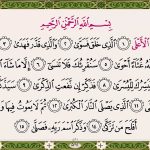 بِسْمِ اللَّهِ الرَّحْمَٰنِ الرَّحِيمِ
الْأَعْلَى ۝١ الَّذِي خَلَقَ فَسَوَّىٰ ۝٢ وَالَّذِي قَدَّرَ فَهَدَىٰ ۝٣
غُثَاءً أَحْوَىٰ ۝٥ سَنُقْرِئُكَ فَلَا تَنسَىٰ ۝٦ إِلَّا مَا شَاءَ
لِلْيُسْرَىٰ ۝٨ فَذَكِّرْ إِن نَّفَعَتِ الذِّكْرَىٰ ۝٩
الَّذِي يَصْلَى النَّارَ الْكُبْرَىٰ ۝١٢ ثُمَّ لَا يَمُوتُ فِيهَا
أَفْلَحَ مَن تَزَكَّىٰ ۝١٤ وَذَكَرَ اسْمَ رَبِّهِ فَصَلَّىٰ ۝١٥